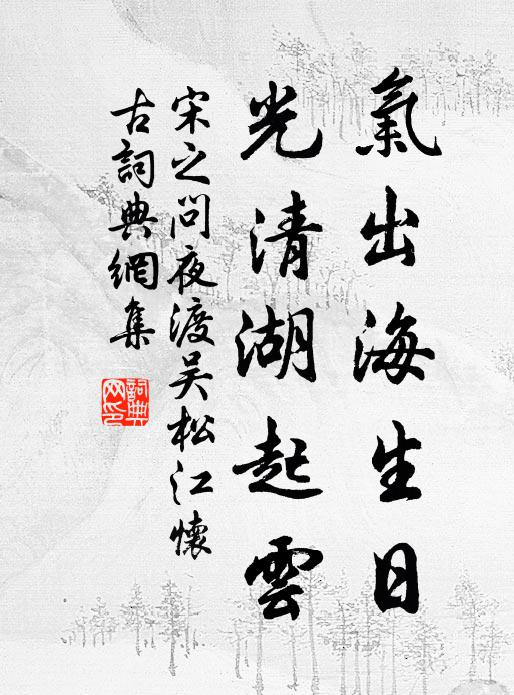 氣出海生日
光清湖起雲
宋之問夜渡吳松江懷
古詞典網集
詞典網印